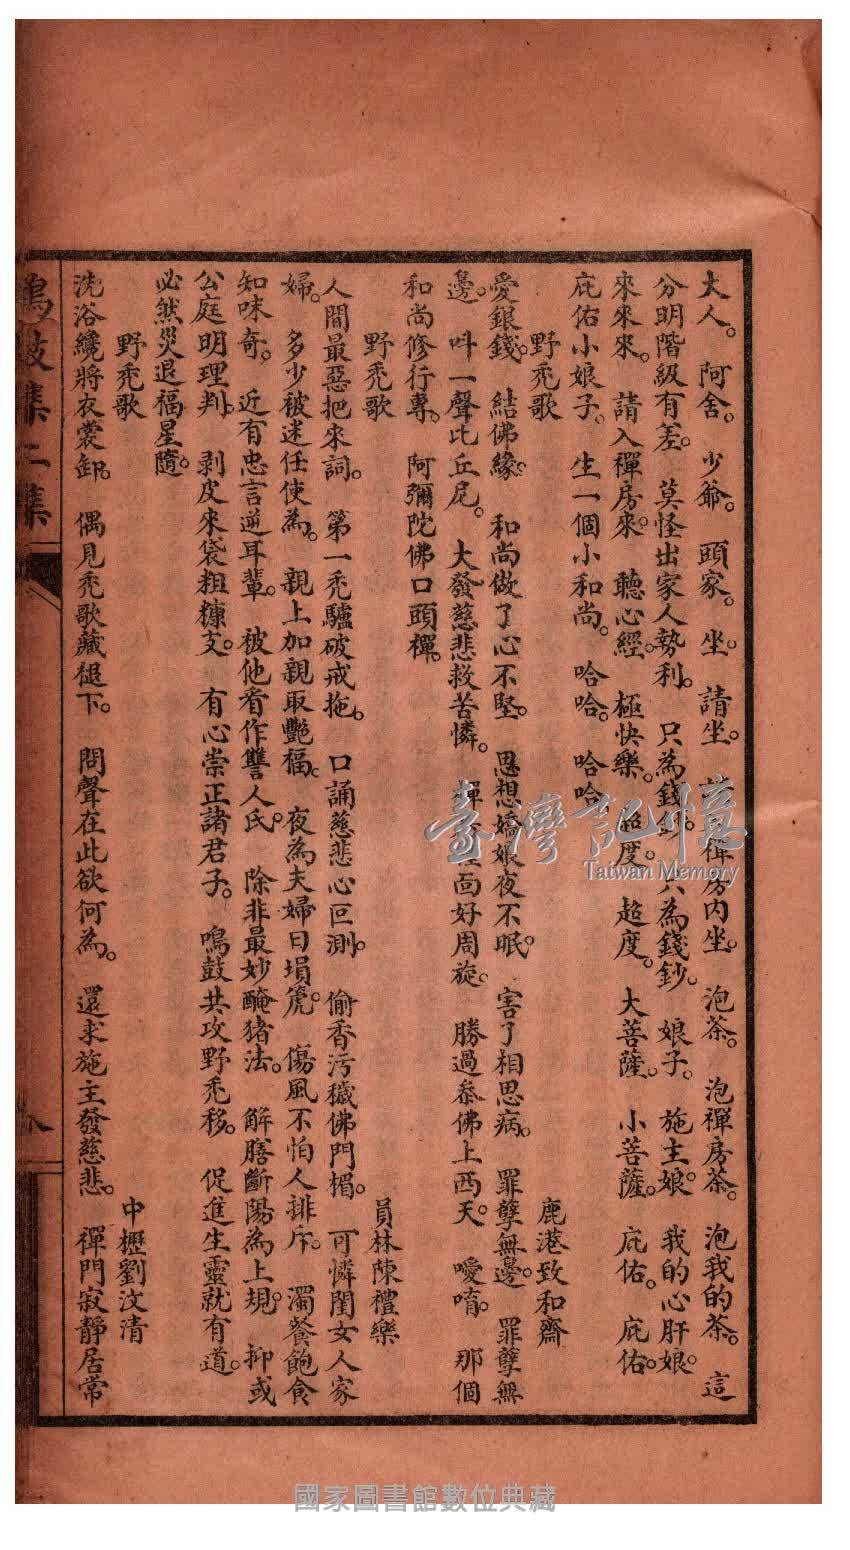 大人。阿舍。少爺。頭家。坐。請坐。請 禪房內坐。泡茶。泡禪房茶。泡我的茶。這
分明階級有差。莫怪出家人勢利。只為錢鈔。只為錢鈔。娘子。施主娘。我的心肝娘。
來來來。請入禪房來。聽心經。極快樂。超度。超度。大菩薩。小菩薩。庇佑。庇佑。
庇佑小娘子。生一個小和尚。哈哈。哈哈
野禿歌 鹿港致和齋
愛銀錢。結佛緣。和尚做了心不堅。思想嬌娘夜不眠。害了相思病。罪孽無邊。罪孽無
邊。叫一聲比丘尼。大發慈悲救苦憐。禪 面好周旋。勝過叅佛上西天。噯唷。那個
和尚修行專。阿彌陀佛口頭禪。
野禿歌 員林陳禮樂
人間最惡把來詞。第一禿驢破戒拖。口誦慈悲心叵測。偷香污穢佛門楣。可憐閨女人家
婦。多少被迷任使為。親上加親取艷福。夜為夫婦日塤箎。傷風不怕人排斥。濁餐飽食
知味奇。近有忠言逆耳輩。被他看作讐人氏。除非最妙醃猪法。解膳斷陽為上規。抑或
公庭明理判。剥皮來袋粗糠支。有心崇正諸君子。鳴鼓共攻野禿移。促進生靈就有道。
必然災退福星隨。
野禿歌 中壢劉汶清
洗浴纔將衣裳卸。偶見禿歌藏褪下。問聲在此欲何為。還求施主發慈悲。禪門寂靜居常
鳴鼓集二集
八
臺灣記憶
Taiwan Memory
國家圖書館數位典藏